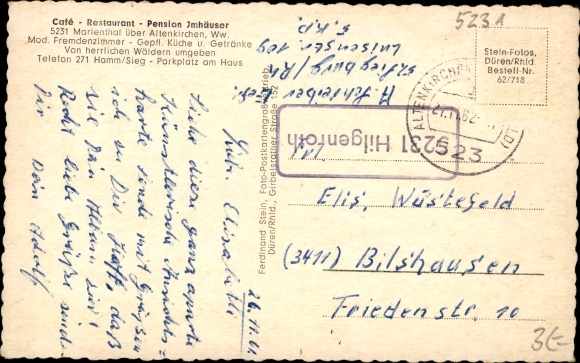 Café - Restaurant - Pension Jmhäuser
5231 Marienthal über Altenkirchen, Ww.
Mod. Fremdenzimmer - Gepfl. Küche u. Getränke
Von herrlichen Wäldern umgeben
Telefon 271 Hamm/Sieg - Parkplatz am Haus
5231
Stein-Fotos,
Düren/Rhld
Bestell-Nr.
62/718
A Schreiber
Siegburg/Rh
Luisenstr 109
ALTENKIRCHEN
21.11.62
523
5231 Hilgenroth
Ferdinand Stein, Foto-Postkartengroßvertrieb
Düren/Rhld., Girbelsrather Straße 152
26.11.62
Liebe Elisabeth
Liebe diese ganz aparte
Künstlerische Ansichts-
karte sende mit Grüßen
ich an Dich
Recht liebe Grüße sendet
Dir Dein Adolf
Elis. Wüstefeld
(3411) Bilshausen
Friedenstr. 10
3€-